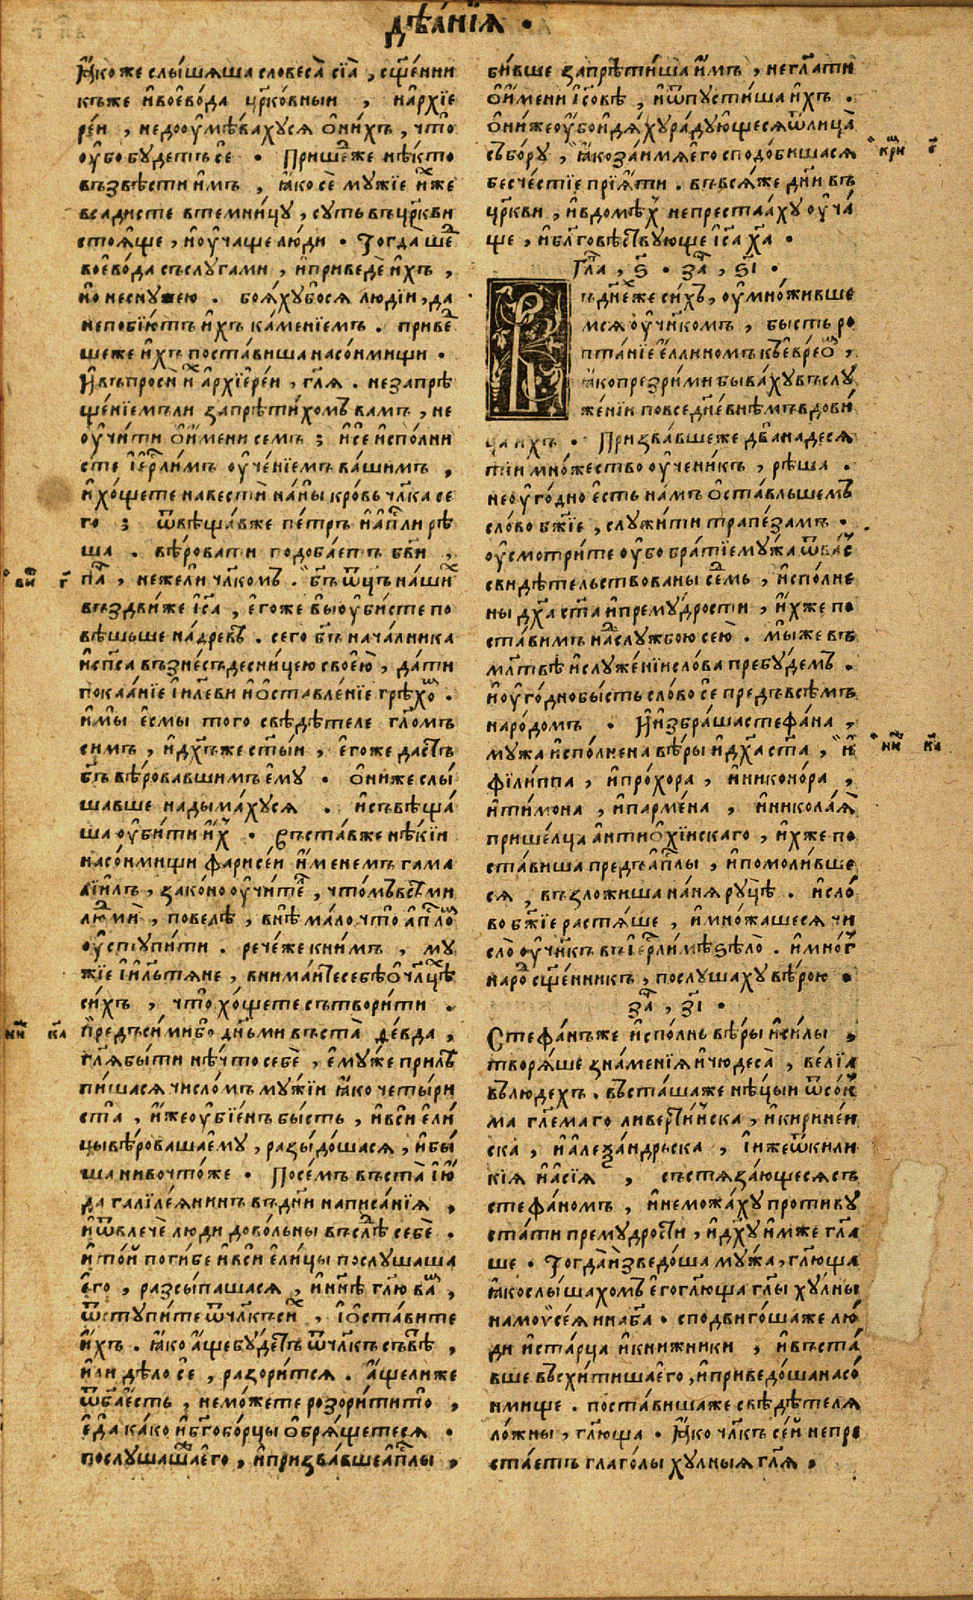 дѣѧ́нїѧ .
Ꙗ҆́коже слы́шѧша словеса̀ сїѧ̀ , сщ҃е́нни
къже и҆воево́да цр҃ко́вныи , и҆архїе
ре́и , недооу҆мѣва́хусѧ ѻ҆ни́хъ , что̀
оу҆́бо бу́детъ сѐ . Прише́дже нѣ́кто
възвѣсти и҆мъ , ꙗ҆́ко сѐ му́жїе и҆́же
всадисте втемни́цу , су́ть въцр҃кви
стоѧ́ще , и҆оу҆ча́ще лю́ди . Тогда̀ ше́д
воево́да съслуга́ми , и҆приведѐ и҆́хъ ,
но неснужею . боѧ́хубосѧ люді́и , да
непобїю́тъ и҆́хъ ка́менїемъ . приве́д
шеже и҆́хъ поста́виша насо́нмищи .
И҆въпроси и҆̀ а҆рхїере́и , гл҃ѧ . незапрѣ
ще́нїемъли запрѣти́хомъ вамъ , не
оу҆чи́ти ѻ҆и҆́мени семъ ; и҆сѐ и҆спо́лни
сте і҆ер҃ли́мъ оу҆че́нїемъ ва́шимъ ,
и҆ хо́щете навестѝ на́ны кро́вь чл҃ка се
го̀ ; ѿвѣща́вже пе́тръ и҆а҆п҃ли рѣ́
ша . вѣ́ровати подоба́етъ бг҃ви ,
па́ , нежели чл҃комъ . бг҃ъ ѿц҃ъ на́ши
въздви́же і҆с҃а , е҆го́же вы̀ оу҆би́сте по
вѣ́шьше на́древѣ . сего̀ бг҃ъ нача́лника
и҆сп҃са възне́съ десни́цею свое́ю , да́ти
покаѧ́нїе і҆и҃леви и҆ѻ҆ставле́нїе грѣхо́въ .
и҆мы̀ е҆смы̀ того̀ свѣдѣ́теле гл҃омъ
симъ , и҆дх҃ъже ст҃ы́и , е҆го́же да́стъ
бг҃ъ вѣ́ровавшимъ е҆му̀ . ѻ҆ни́же слы́
шавше надыма́хусѧ . и҆съвѣща́
ша оу҆би́ти и҆́хъ . въста́вже нѣ́кїи
насо́нмищи фарисе́и и҆́менемъ гама
лїи́лъ , зако́но оу҆чи́тель , что́мъвсѣ́ми
людмѝ , повелѣ̀ , внѣ̀ ма́ло что̀ а҆п҃ло́мъ
оу҆сту́пити . рече́же кни́мъ , му́
жїе і҆и҃льтѧне , внима́йте себѣ̀ ѻ҆чл҃цѣ́
си́хъ , что̀ хо́щете сътвори́ти .
пре́дъ си́ми бо дн҃ьми въста̀ ѳе́вда ,
гл҃ѧ бы́ти нѣ́что себѐ , е҆му́же прилѣ
пи́шасѧ число́мъ му́жїи ꙗ҆́ко четы́ри
ста , и҆́же оу҆бїе́нъ бы́сть , и҆вси е҆ли́
цы вѣ́роваша е҆му̀ , разыдо́шасѧ , и҆бы́
ша нивочто́же . Посе́мъ въста̀ і҆ю́
да галїле́ѧнинъ въдни́ написа́нїѧ ,
и҆ѿвлечѐ лю́ди дово́льны въслѣ́дъ себѐ .
и҆ то́й поги́бе и҆вси е҆ли́цы послу́шаша
е҆го̀ , разсы́пашасѧ , и҆ны́нѣ гл҃ю ва́мъ ,
ѿступи́те ѿчл҃къ си́хъ , і҆ѻ҆ста́вите
и҆́хъ . ꙗ҆́ко а҆́ще бу́детъ ѿчл҃къ съвѣ́тъ ,
и҆лѝ дѣ́ло сѐ , разори́тсѧ . а҆́щелиже
ѿбг҃а е҆́сть , немо́жете розори́ти то̀ ,
е҆да̀ ка́ко и҆бг҃обо́рцы ѻ҆брѧ́щетесѧ .
послу́шашаже е҆го̀ , и҆призва́вше а҆п҃лы ,
би́вше запрѣти́ша и҆́мъ , негл҃ати
ѻ҆и҆́мени і҆с҃овѣ , и҆ѿпусти́ша и҆́хъ .
ѻ҆ни́же оу҆́бо и҆дѧ́ху ра́дующесѧ ѿлица̀
събо́ру , ꙗ҆́ко за́имѧ е҆го̀ сподо́бишасѧ
бесче́стїе прїѧ́ти . въвсѧ́же дн҃и въ
цр҃кви , и҆вдомѣ́хъ непреста́аху оу҆ча́
ще , и҆бл҃говѣ́ствующе і҆с҃а х҃а .
Гл҃а , ѕ҃ . за҃ , ѕ҃і .
ъдни́же си́хъ , оу҆мно́живше
мсѧ оу҆чн҃ко́мъ , бы́сть ро
пта́нїе е҆́ллиномъ къе҆вре́ѡмъ ,
ꙗ҆́ко презри́ми быва́ху въслу
же́нїи повседне́внѣмъ вдови́
ца и҆́хъ . Призва́вшеже двана́десѧ
тїи мно́жество оу҆чени́къ , рѣ́ша .
неоу҆го́дно е҆́сть на́мъ ѻ҆ста́вльшемъ
сло́во бж҃їе , служи́ти трапе́замъ .
оу҆смотри́те оу҆́бо бра́тїе му́жа ѿва́съ
свидѣ́тельствованы се́дмь , и҆спо́лне
ны дх҃а ст҃а и҆прему́дрости , и҆́хже по
ста́вимъ надслу́жбою се́ю . мы́же въ
мл҃твѣ и҆служе́нїи сло́ва пребу́демъ .
и҆оу҆го́дно бы́сть сло́во сѐ предъ всѣ́мъ
наро́домъ . И҆избра́ша стефа́на ,
му́жа и҆спо́лнена вѣ́ры и҆дх҃а ст҃а , и҆
фїли́ппа , и҆про́хора , и҆никоно́ра ,
и҆ти́мона , и҆парме́на , и҆никола́ѧ
прише́лца а҆нтиѻ҆хі́нскаго , и҆́хже по
ста́виша предъ а҆п҃лы , и҆помоли́вше
сѧ , възложи́ша на́нѧ ру́цѣ . и҆сло́
во бж҃їе растѧ́ше , и҆мно́жашесѧ чи
сло̀ оу҆чн҃къ въі҆ер҃ли́мѣ ѕѣло̀ . и҆мно́гъ
наро́дъ сщ҃е́нникъ , послу́шаху вѣ́рою .
за҃ , з҃і .
Стефа́нъже и҆спо́лнь вѣ́ры и҆си́лы ,
творѧ́ше зна́менїѧ и҆чюдеса̀ , ве́лїа
влю́дехъ . въста́шаже нѣ́цыи ѿсо́н
ма гл҃емаго ливерти́нска , и҆кирине́и
ска , и҆а҆леѯа́ндрьска , і҆и҆́же ѿкили
кі́ѧ и҆а҆сі́ѧ , състѧза́ющесѧ съ
стефа́номъ , и҆немо́жаху противу
ста́ти прему́дрости , и҆дх҃у и҆́мже гл҃а
ше . Тогда̀ и҆зведо́ша му́жа , гл҃юща
ꙗ҆́ко слы́шахомъ е҆го̀ гл҃юща гл҃ы ху́лны
намоѵ̈се́ѧ и҆на бг҃а . сподвиго́шаже лю́
ди и҆ста́рца и҆кни́жники , и҆въста́
вше въсхи́тиша е҆го̀ , и҆приведо́ша насо́
нмище . поста́вишаже свѣдѣ́телѧ
ло́жны , гл҃юща . Ꙗ҆́ко чл҃къ се́й непре
ста́етъ глаго́лы ху́лныѧ гл҃ѧ .